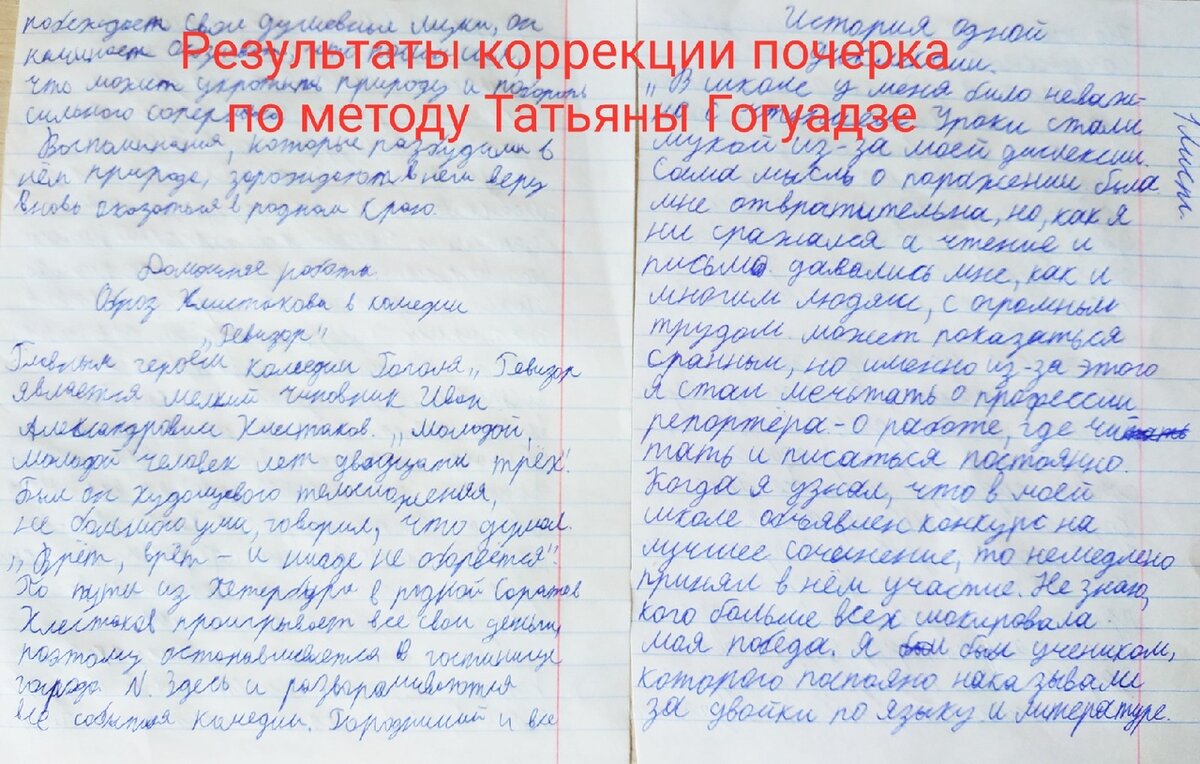 Результаты коррекции почерка
по методу Татьяны Гогуадзе
побеждает свои душевные муки, он
начинает
что может укротить природу и побороть
сильного
Воспоминания, которые разбудили в
нём природе, зарождают в нём веру
вновь оказаться в родном краю.
Домашняя работа
Образ Хлестакова в комедии
„Ревизор"
Главным героем комедии Гоголя „Ревизор
является мелкий чиновник Иван
Александрович Хлестаков. „Молодой,
молодой человек лет двадцати трёх!
Был он худощавого телосложения,
не большого ума, говорил, что думал.
„Врёт, врёт – и нигде не оборвётся"
По пути из Петербурга в родной Саратов
Хлестаков проигрывает все свои деньги,
поэтому останавливается в гостинице
города N. Здесь и разворачиваются
все события комедии. Городничий и все
История одной
„В школе у меня было неваж-
но с Уроки стали
мукой из-за моей дислексии.
Сама мысль о поражении была
мне отвратительна, но, как я
ни сражался а чтение и
письмо давались мне, как и
многим людям, с огромным
трудом. может показаться
сранным, но именно из-за этого
я стал мечьтать о профессии
репортёра – о работе, где чи
тать и писаться постоянно.
Когда я узнал, что в моей
школе объявлен конкурс на
лучшее сочинение, то немедлено
принял в нём участие. Не знаю,
кого больше всех шокировала
моя победа. Я был учеником,
которого поспояно наказывали
за двойки по языку и литературе.
1 лист.